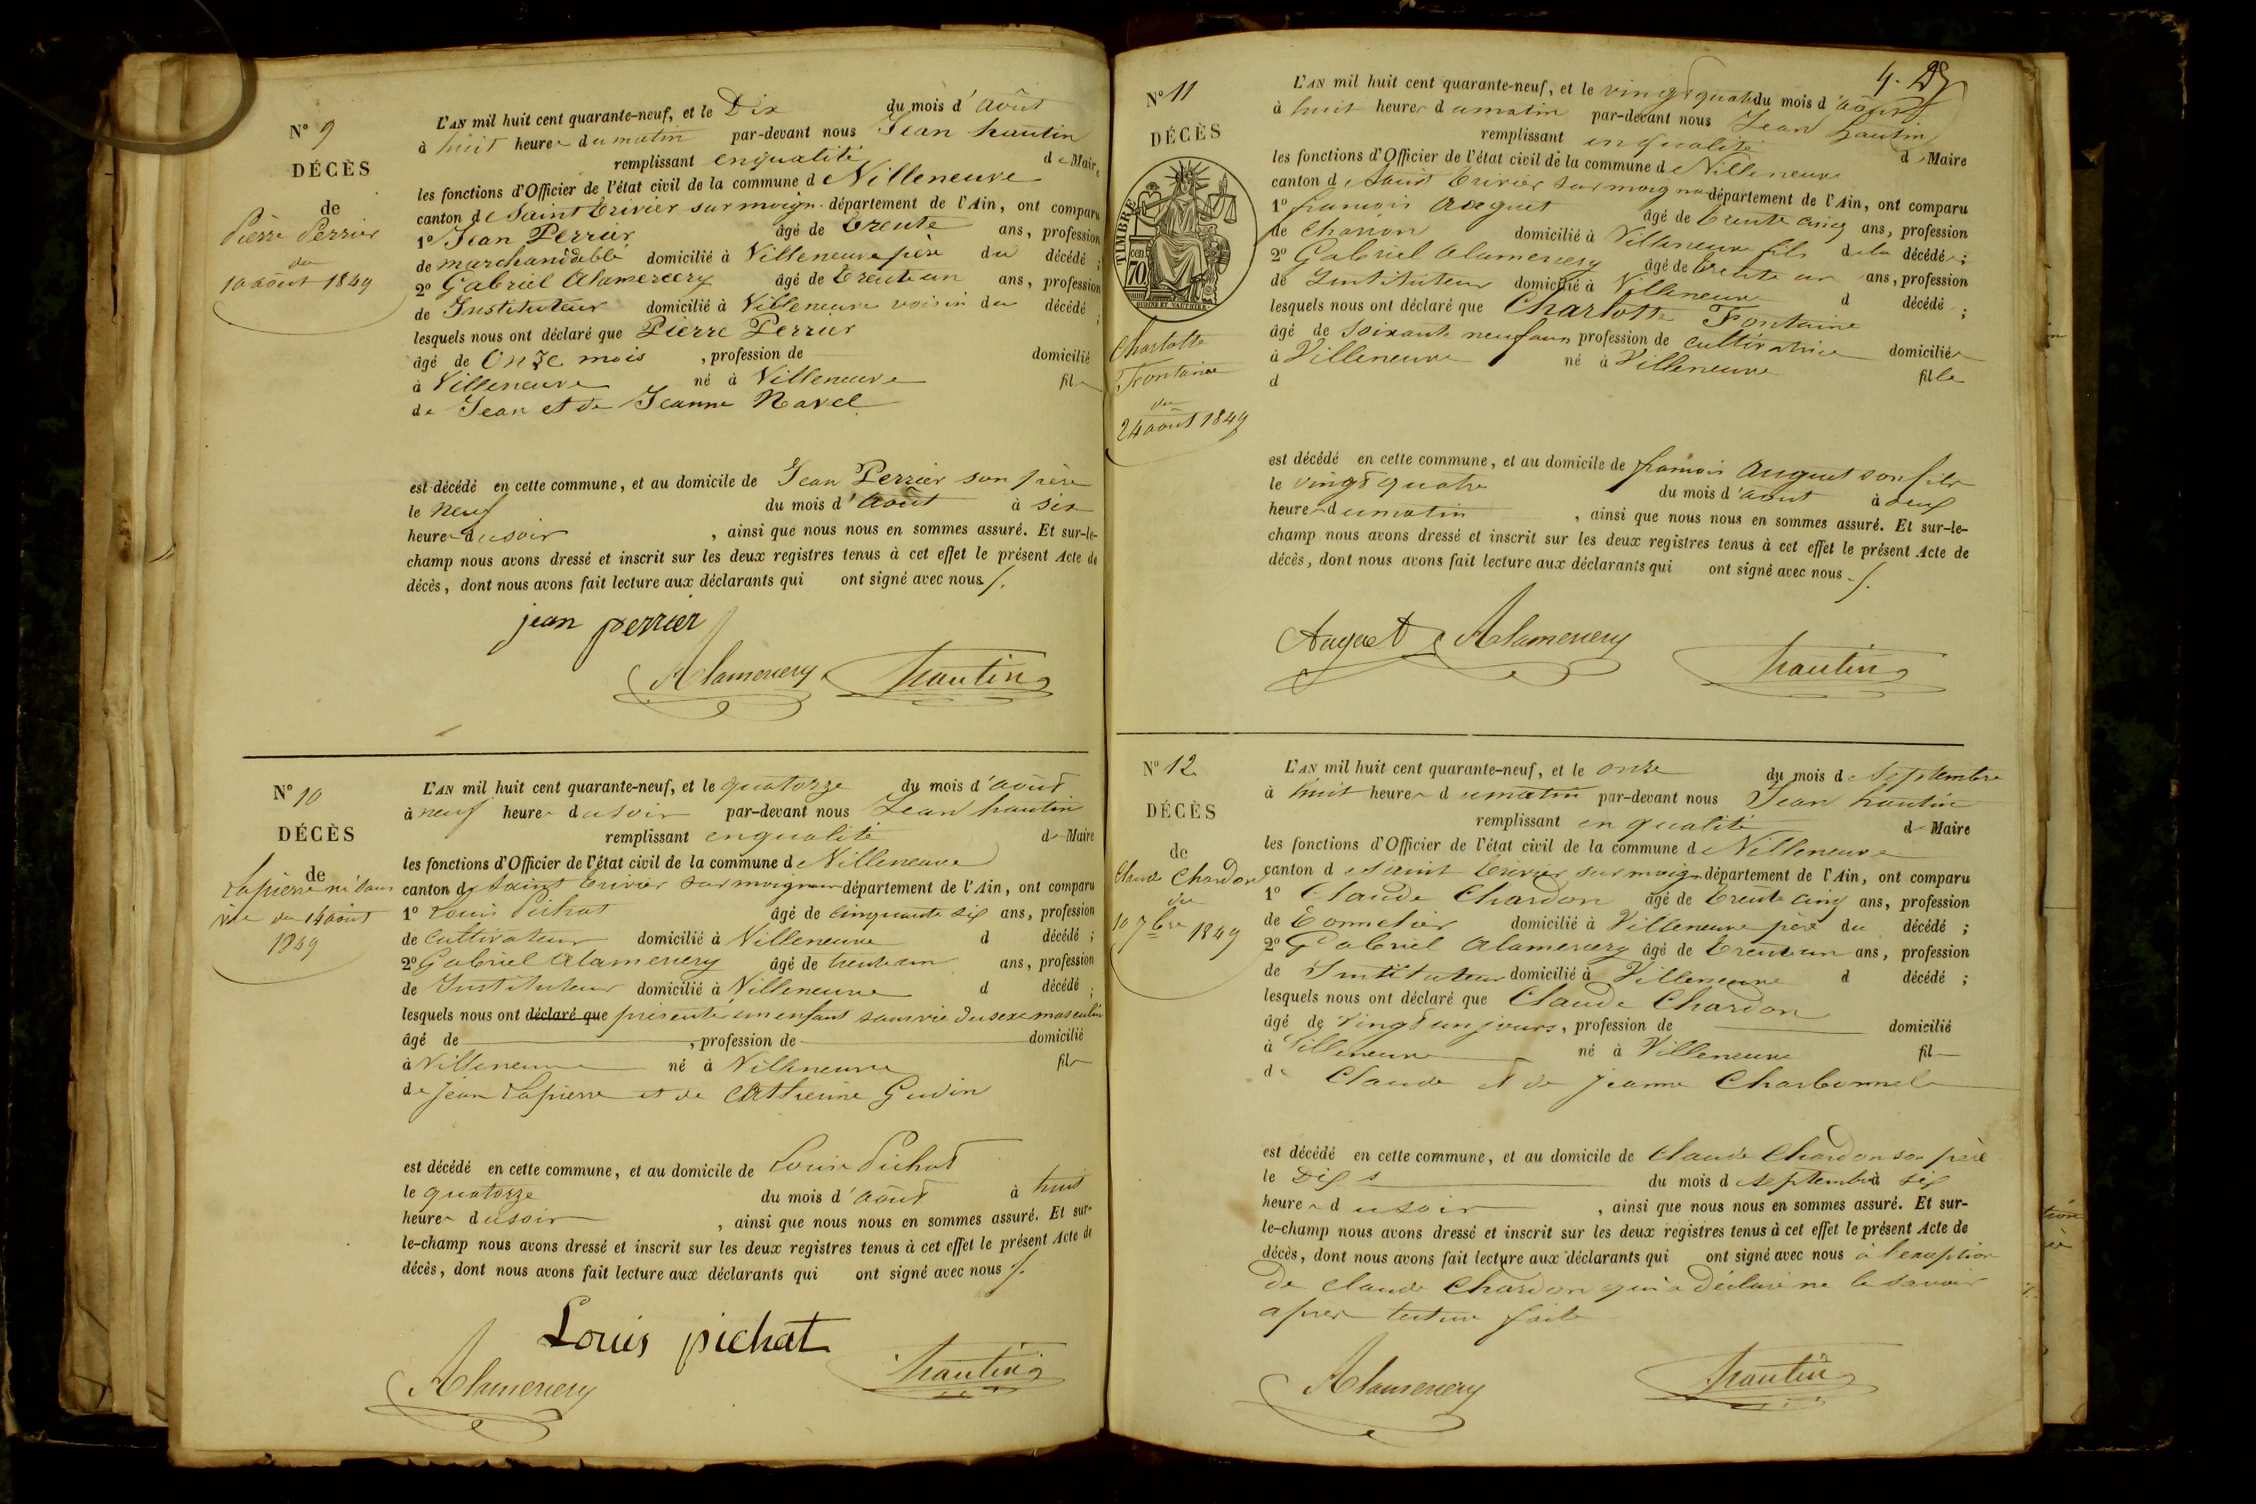 N° 9
DÉCÈS
de
Pierre Perrier
du
10 août 1849
L'AN mil huit cent quarante-neuf, et le Dix du mois d'août
à huit heures du matin par-devant nous Jean hautin
remplissant en qualité de Maire
les fonctions d'Officier de l'état civil de la commune de Villeneuve
canton de Saint trivier sur moign. département de l'Ain, ont comparu
1° Jean Perrier âgé de trente ans, profession
de marchand de blé domicilié à Villeneuve père du décédé ;
2° Gabriel Alamercery âgé de trente un ans, profession
de Instituteur domicilié à Villeneuve voisin du décédé ;
lesquels nous ont déclaré que Pierre Perrier
âgé de Onze mois , profession de domicilié
à Villeneuve né à Villeneuve fils
de Jean et de Jeanne Ravel
est décédé en cette commune, et au domicile de Jean Perrier son père
le neuf du mois d'août à six
heures du soir , ainsi que nous nous en sommes assuré. Et sur-le-
champ nous avons dressé et inscrit sur les deux registres tenus à cet effet le présent Acte de
décès, dont nous avons fait lecture aux déclarants qui ont signé avec nous
jean perrier
Alamercery hautin
N° 10
DÉCÈS
de
Lapierre né sans
vie du 14 août
1849
L'AN mil huit cent quarante-neuf, et le quatorze du mois d'août
à neuf heures du soir par-devant nous Jean hautin
remplissant en qualité de Maire
les fonctions d'Officier de l'état civil de la commune de Villeneuve
canton de Saint trivier sur moignans département de l'Ain, ont comparu
1° Louis Pichat âgé de cinquante six ans, profession
de Cultivateur domicilié à Villeneuve d décédé ;
2° Gabriel Alamercery âgé de trente un ans, profession
de Instituteur domicilié à Villeneuve d décédé ;
lesquels nous ont déclaré que présenté un enfant sans vie du sexe masculin
âgé de , profession de domicilié
à Villeneuve né à Villeneuve fils
de Jean Lapierre et de Catherine Gudin
est décédé en cette commune, et au domicile de Louis Pichat
le quatorze du mois d'août à huit
heures du soir , ainsi que nous nous en sommes assuré. Et sur-
le-champ nous avons dressé et inscrit sur les deux registres tenus à cet effet le présent Acte de
décès, dont nous avons fait lecture aux déclarants qui ont signé avec nous
Louis pichat
Alamercery hautin
4.
N° 11
DÉCÈS
TIMBRE
70 cen
Charlotte
Fontaine
du
24 août 1849
L'AN mil huit cent quarante-neuf, et le vingt quatre du mois d'août
à huit heures du matin par-devant nous Jean hautin
remplissant en qualité de Maire
les fonctions d'Officier de l'état civil de la commune de Villeneuve
canton de Saint trivier sur moignans département de l'Ain, ont comparu
1° françois Auguet âgé de trente cinq ans, profession
de Charron domicilié à Villeneuve fils de la décédée ;
2° Gabriel Alamercery âgé de trente un ans, profession
de Instituteur domicilié à Villeneuve d décédé ;
lesquels nous ont déclaré que Charlotte Fontaine
âgé de soixante neuf ans profession de cultivatrice domiciliée
à Villeneuve né à Villeneuve fille
d
est décédé en cette commune, et au domicile de françois Auguet son fils
le vingt quatre du mois d'août à deux
heures du matin , ainsi que nous nous en sommes assuré. Et sur-le-
champ nous avons dressé et inscrit sur les deux registres tenus à cet effet le présent Acte de
décès, dont nous avons fait lecture aux déclarants qui ont signé avec nous
Auguet Alamercery
hautin
N° 12
DÉCÈS
de
Claude Chardon
du
10 7bre 1849
L'AN mil huit cent quarante-neuf, et le onze du mois de Septembre
à huit heures du matin par-devant nous Jean hautin
remplissant en qualité de Maire
les fonctions d'Officier de l'état civil de la commune de Villeneuve
canton de Saint trivier sur moign. département de l'Ain, ont comparu
1° Claude Chardon âgé de trente cinq ans, profession
de Tonnelier domicilié à Villeneuve père du décédé ;
2° Gabriel Alamercery âgé de trente un ans, profession
de Instituteur domicilié à Villeneuve d décédé ;
lesquels nous ont déclaré que Claude Chardon
âgé de vingt un jours, profession de domicilié
à Villeneuve né à Villeneuve fil
de Claude et de Jeanne Charbonnel
est décédé en cette commune, et au domicile de Claude Chardon son père
le Dix du mois de Septembre à six
heures du soir , ainsi que nous nous en sommes assuré. Et sur-
le-champ nous avons dressé et inscrit sur les deux registres tenus à cet effet le présent Acte de
décès, dont nous avons fait lecture aux déclarants qui ont signé avec nous à l'exception
de Claude Chardon qui a déclaré ne le savoir
après lecture faite
Alamercery hautin